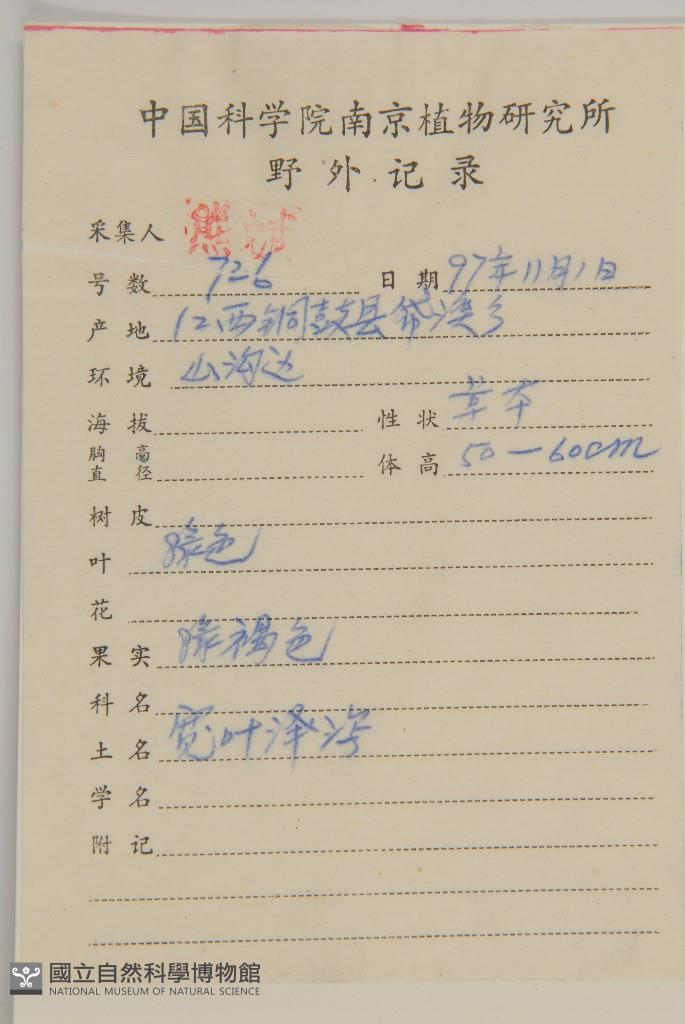 中国科学院南京植物研究所
野外记录
采集人 熊
号数 726 日期 97年11月1日
产地 江西铜鼓县带溪乡
环境 山沟边
海拔 性状 草本
胸高直径 体高 50—60cm
树皮
叶 绿色
花
果实 绿褐色
科名
土名 宽叶泽泻
学名
附记
國立自然科學博物館
NATIONAL MUSEUM OF NATURAL SCIENCE